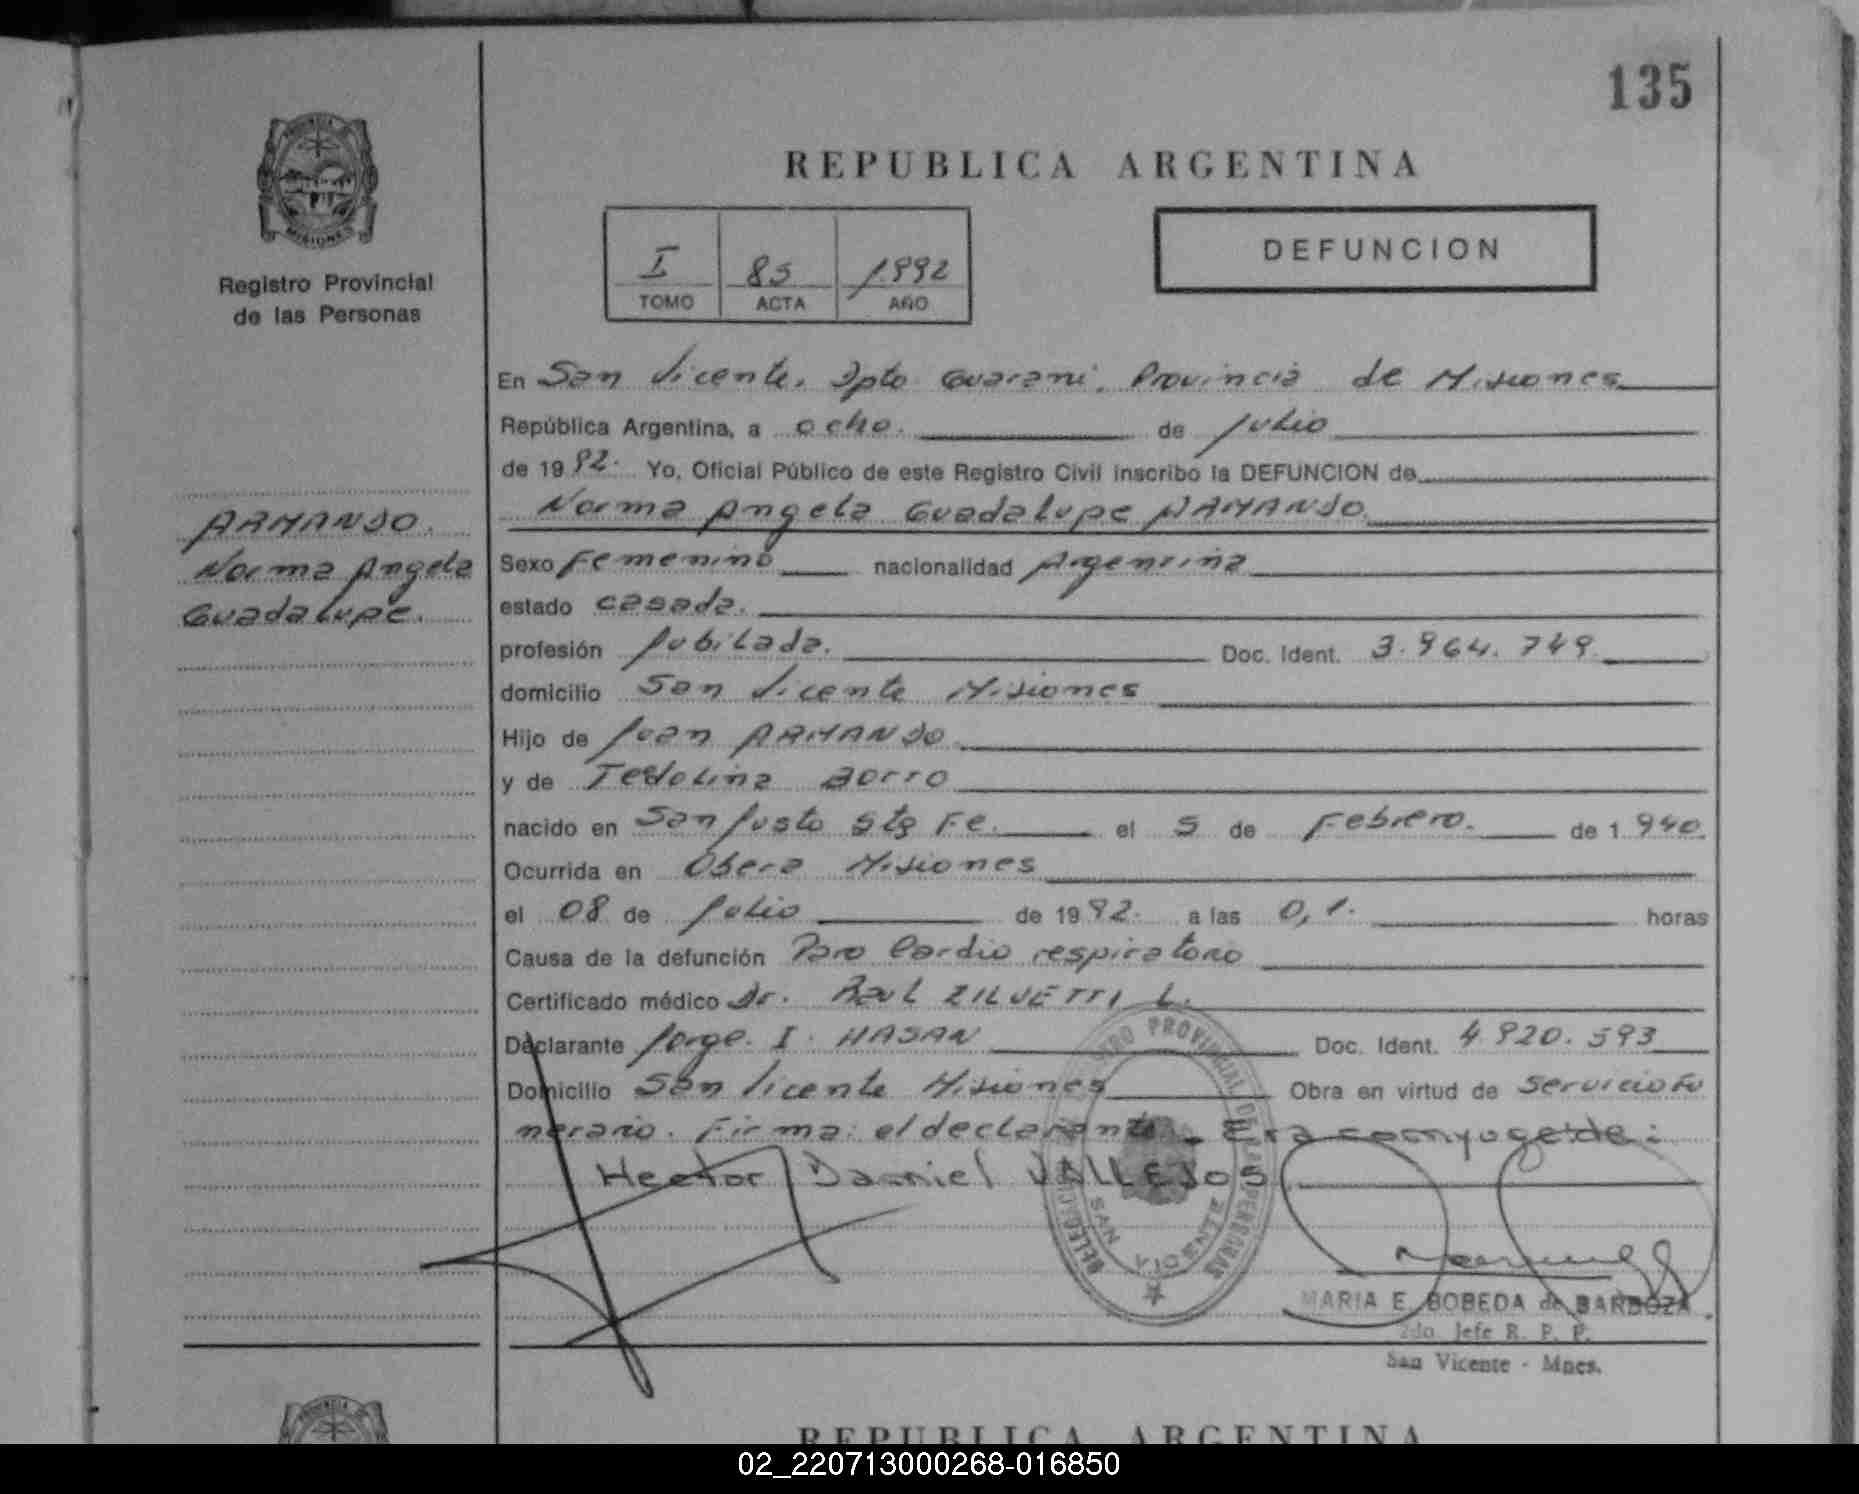 135
PROVINCIA DE
MISIONES
Registro Provincial
de las Personas
REPUBLICA ARGENTINA
I 85 1.992
TOMO ACTA AÑO
DEFUNCION
En San Vicente, Dpto Guarani, Provincia de Misiones
República Argentina, a ocho. de Julio
de 1992. Yo, Oficial Público de este Registro Civil inscribo la DEFUNCION de
Norma Angela Guadalupe ARMANDO
ARMANDO.
Norma Angela
Guadalupe.
Sexo Femenino nacionalidad Argentina
estado casada.
profesión Jubilada. Doc. Ident. 3.964.749.
domicilio San Vicente Misiones
Hijo de Juan ARMANDO
y de Borro
nacido en San Justo Sta Fe. el 5 de Febrero. de 1.940.
Ocurrida en Obera Misiones
el 08 de Julio de 1992. a las 0,1. horas
Causa de la defunción Paro Cardio respiratorio
Certificado médico Dr. Raul ZILVETTI L.
Declarante Jorge. I. HASAN Doc. Ident. 4.920.593
Domicilio San Vicente Misiones Obra en virtud de Servicio Fu
nerario. Firma: el declarante - Era conyuge de:
Hector Daniel VALLEJOS
REGISTRO PROVINCIAL DE LAS PERSONAS
DELEGACION
SAN VICENTE
MARIA E. BOBEDA de BARBOZA
2do. Jefe R. P. P.
San Vicente - Mnes.
REPUBLICA ARGENTINA
02_220713000268-016850